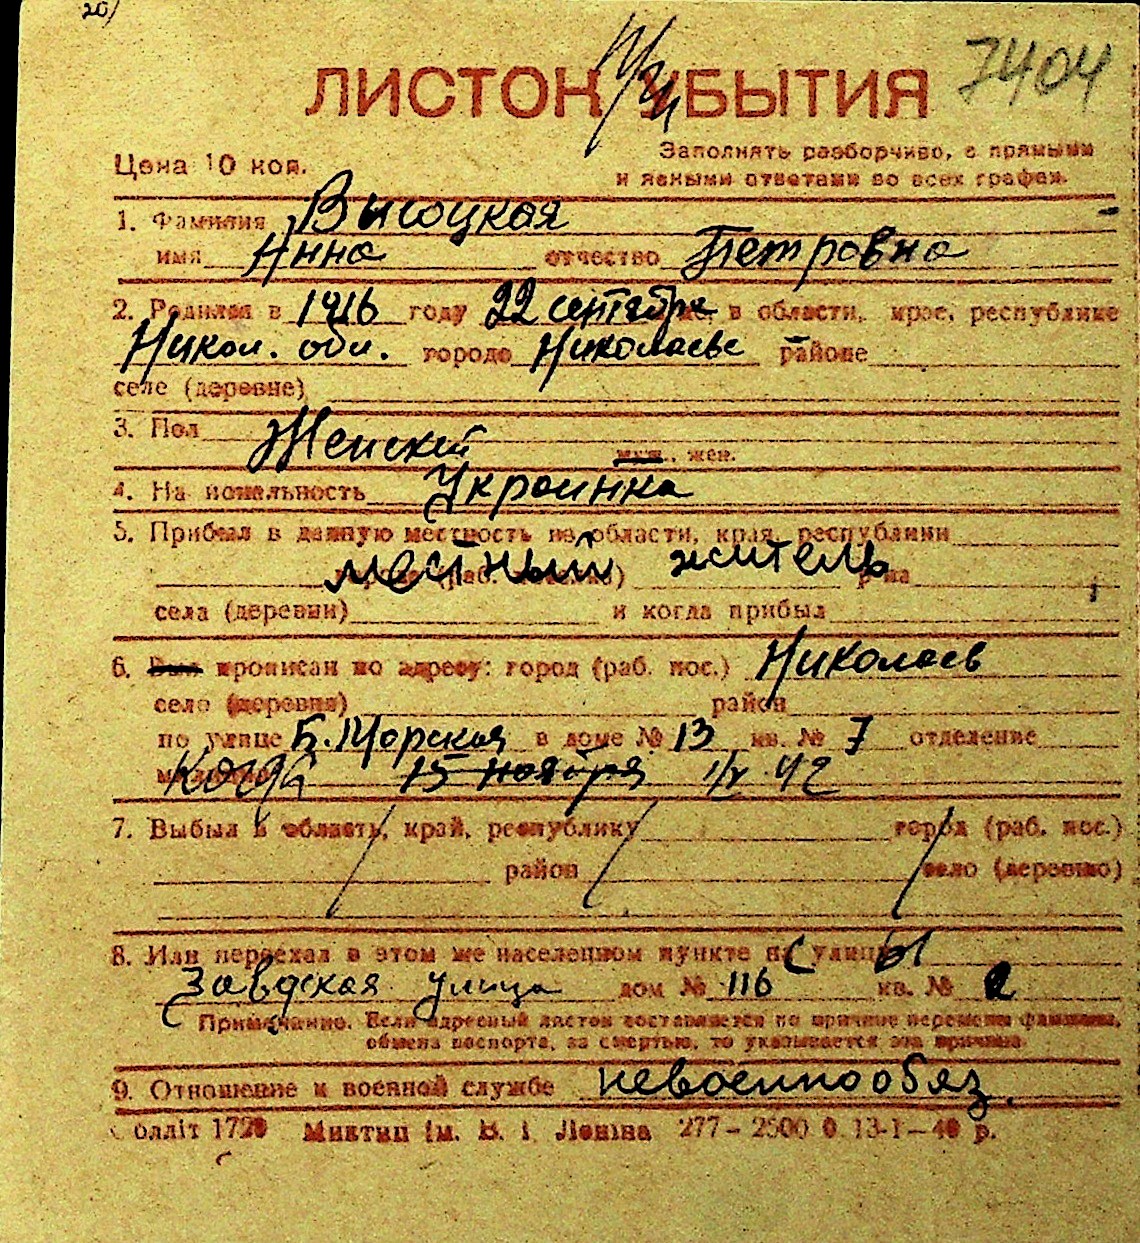 20/
7404
ЛИСТОК УБЫТИЯ
Цена 10 коп.
Заполнять разборчиво, с прямыми
и ясными ответами во всех графах.
1. Фамилия Высоцкая
имя Анна отчество Петровна
2. Родился в 1916 году 22 сентября, в области, крае, республике
Никол. обл. городе Николаеве районе
селе (деревне)
3. Пол Женский муж., жен.
4. Национальность Украинка
5. Прибыл в данную местность из области, края, республики
местный житель р-на
села (деревни) и когда прибыл
6. Был прописан по адресу: город (раб. пос.) Николаев
село (деревня) район
по улице Б. Морская в доме № 13 кв. № 7 отделение
Когда 15 ноября 42
7. Выбыл в область, край, республику город (раб. пос.)
район село (деревню)
8. Или переехал в этом же населенном пункте с улицы
Заводская улица дом № 116 кв. № 2
Примечание. Если адресный листок составляется по причине перемены фамилии,
обмена паспорта, за смертью, то указывается эта причина.
9. Отношение к военной службе невоеннообяз.
Миктип ім. В. І. Леніна 277–2500 0 13-1–40 р.